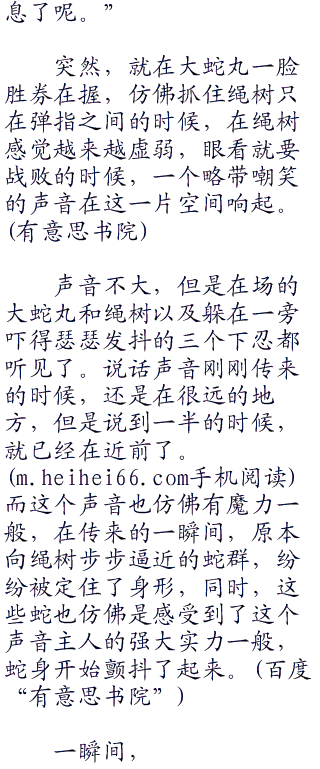 息了呢。”
突然，就在大蛇丸一脸
胜券在握，仿佛抓住绳树只
在弹指之间的时候，在绳树
感觉越来越虚弱，眼看就要
战败的时候，一个略带嘲笑
的声音在这一片空间响起。
(有意思书院)
声音不大，但是在场的
大蛇丸和绳树以及躲在一旁
吓得瑟瑟发抖的三个下忍都
听见了。说话声音刚刚传来
的时候，还是在很远的地
方，但是说到一半的时候，
就已经在近前了。
(m.heihei66.com手机阅读)
而这个声音也仿佛有魔力一
般，在传来的一瞬间，原本
向绳树步步逼近的蛇群，纷
纷被定住了身形，同时，这
些蛇也仿佛是感受到了这个
声音主人的强大实力一般，
蛇身开始颤抖了起来。(百度
“有意思书院”)
一瞬间，